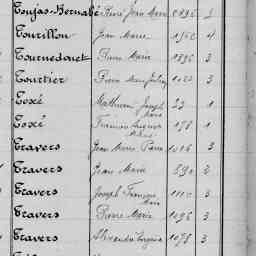 Toujas-Bernabé Pierre Jean Marie 5
Tourillon Jean Marie 4
Tournedouet Pierre Marie 1896 3
Tourtier Pierre Marie 3
Toxé Mathurin Joseph Marie 23 1
Toxé François Auguste Marie 198 1
Travers Jean Marie Pierre 1016 3
Travers Jean Marie 890 2
Travers Joseph François Marie 3
Travers Pierre Marie 1096 3
Travers Alexandre 1098 3